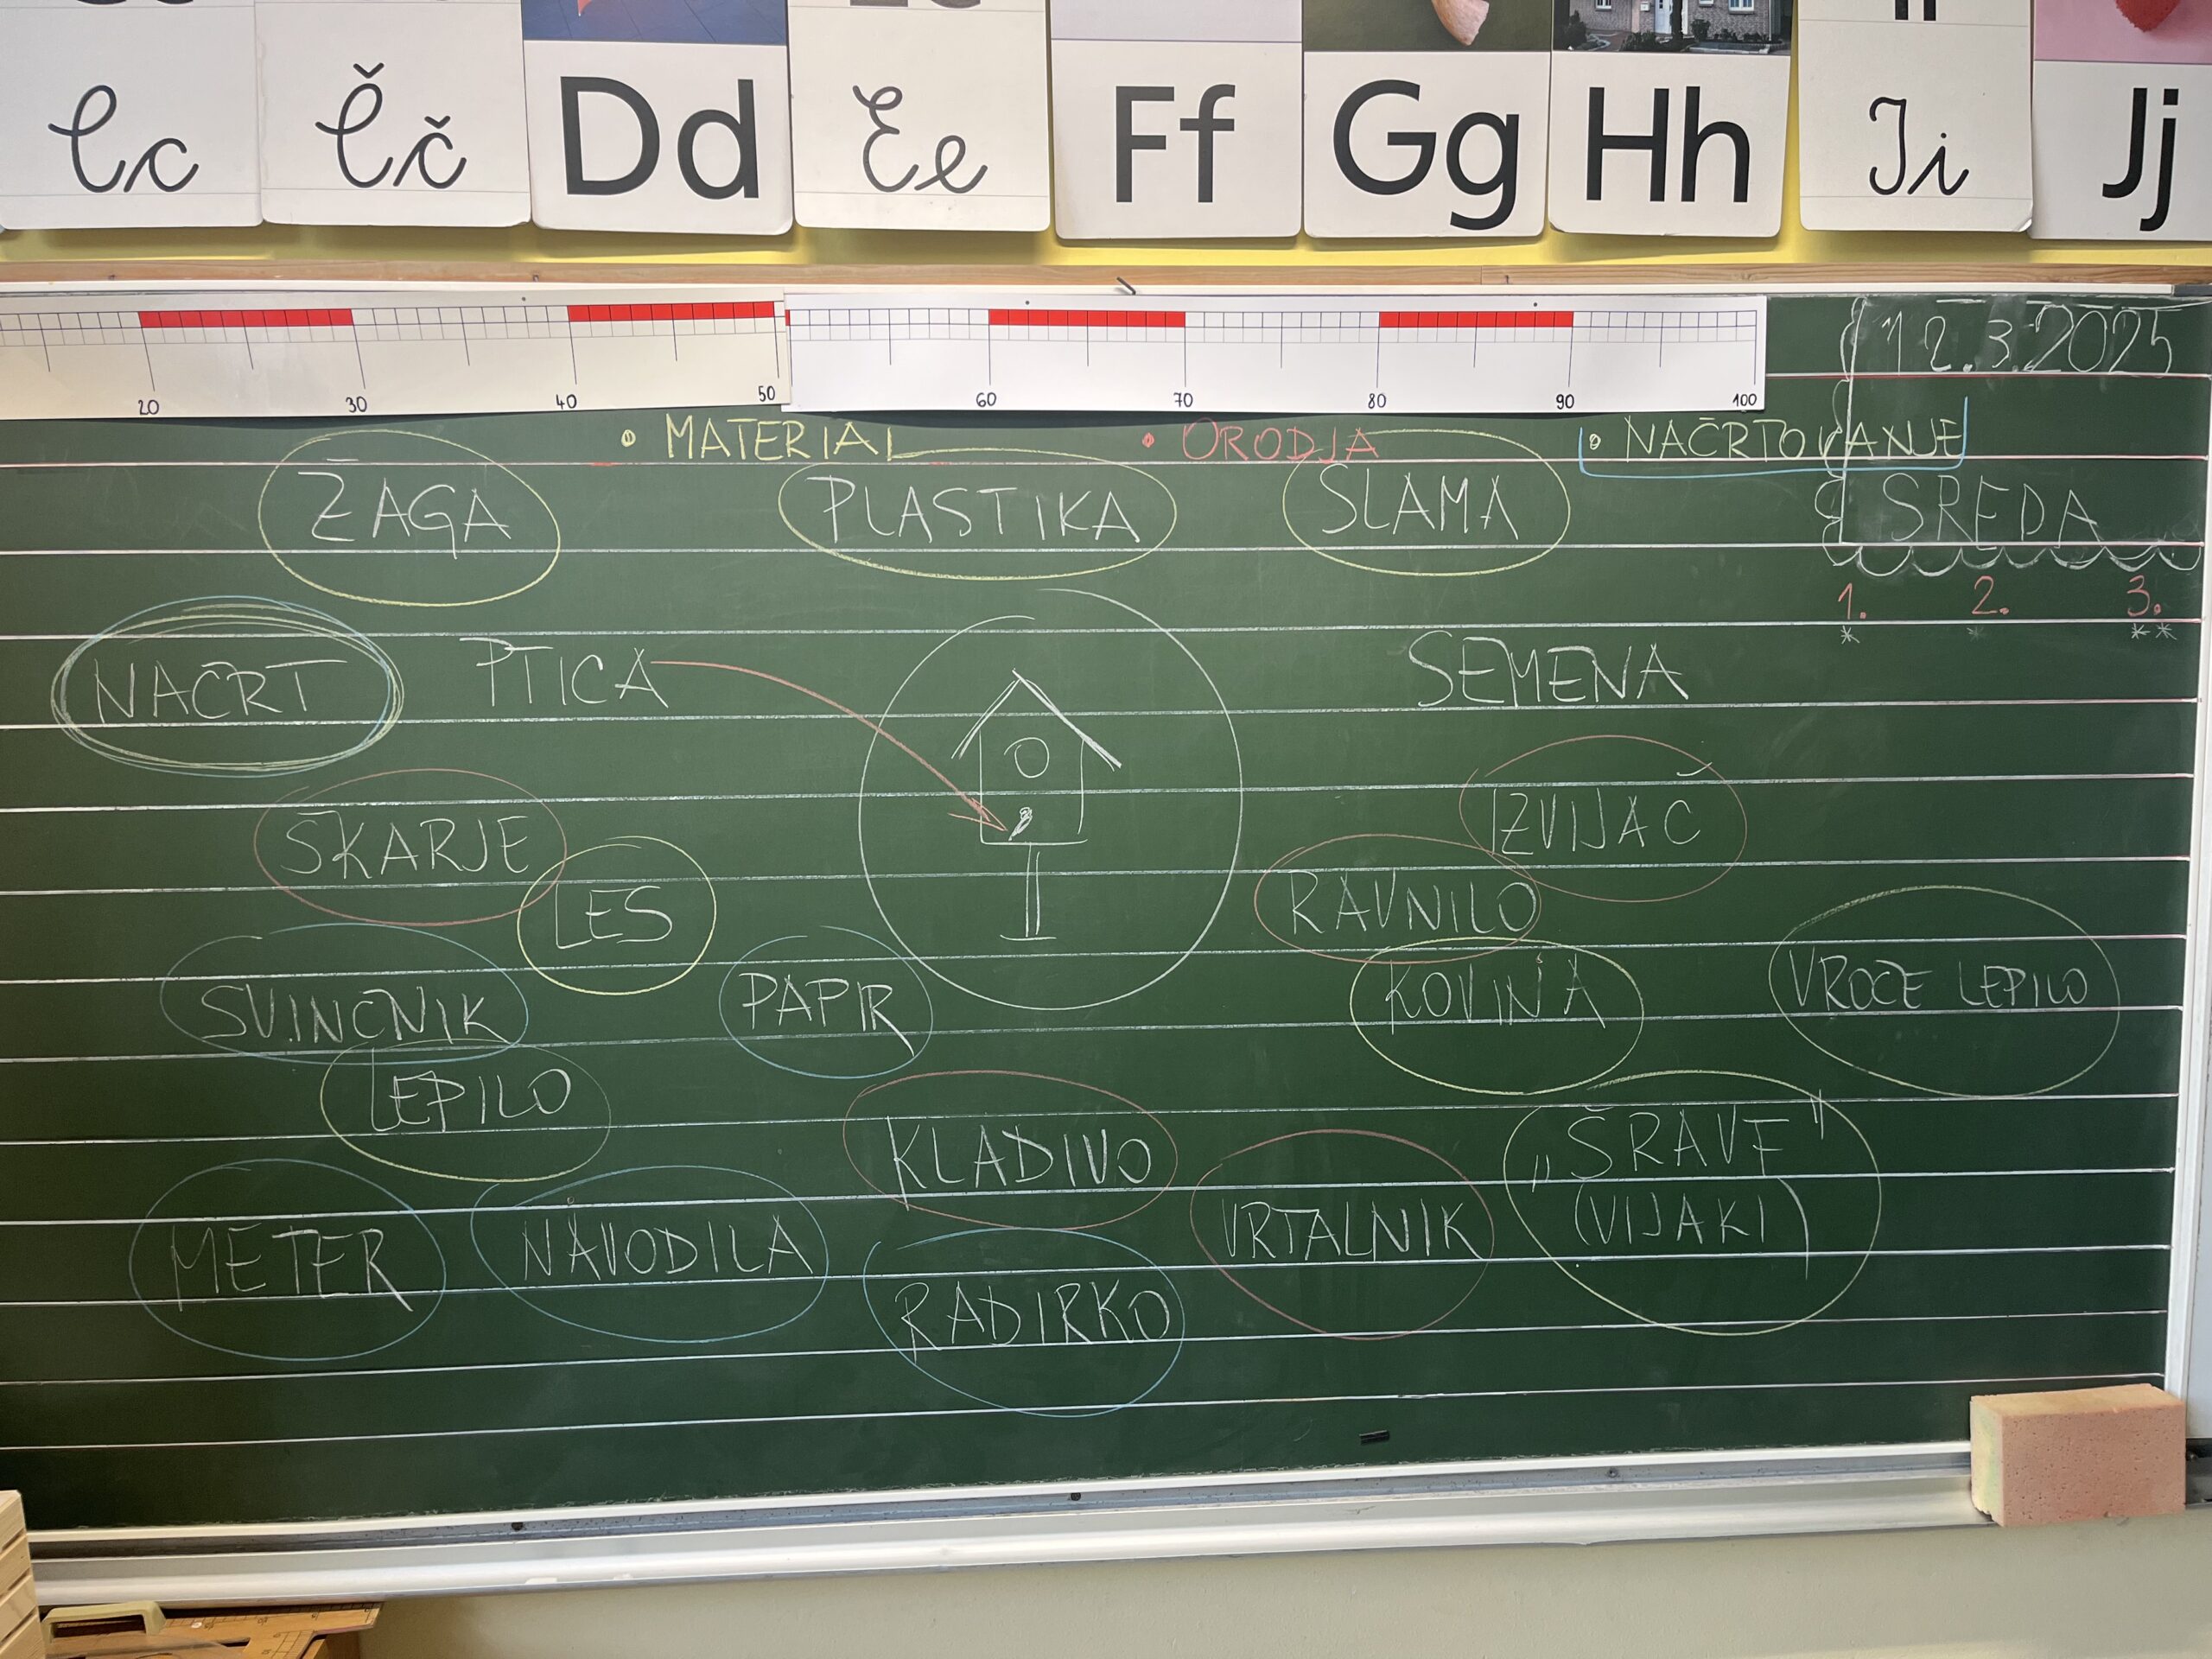 Cc Čč Dd Ee Ff Gg Hh Ii Jj
20 30 40 50 60 70 80 90 100
12.3.2025
• MATERIAL • ORODJA • NAČRTOVANJE
ŽAGA PLASTIKA SLAMA SREDA
1. 2. 3.
NAČRT PTICA SEMENA
ŠKARJE IZVIJAČ
LES RAVNILO
SVINČNIK PAPIR KOVINA VROČE LEPILO
LEPILO
KLADIVO „ŠRAVF"
METER NAVODILA VRTALNIK (VIJAKI)
RADIRKO